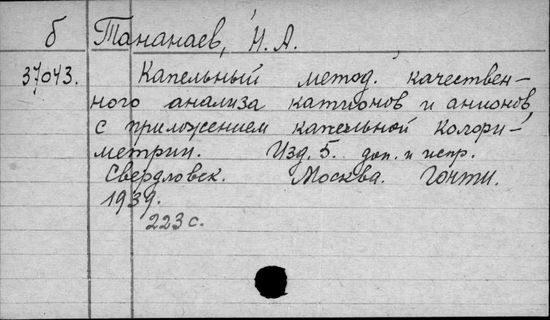 б Тананаев, Н. А.
37043. Капельный метод. качествен-
ного анализа катионов и анионов,
с приложением капельной колори-
метрии. Изд. 5. доп. и испр.
Свердловск. Москва. Гонти.
1939.
223 с.